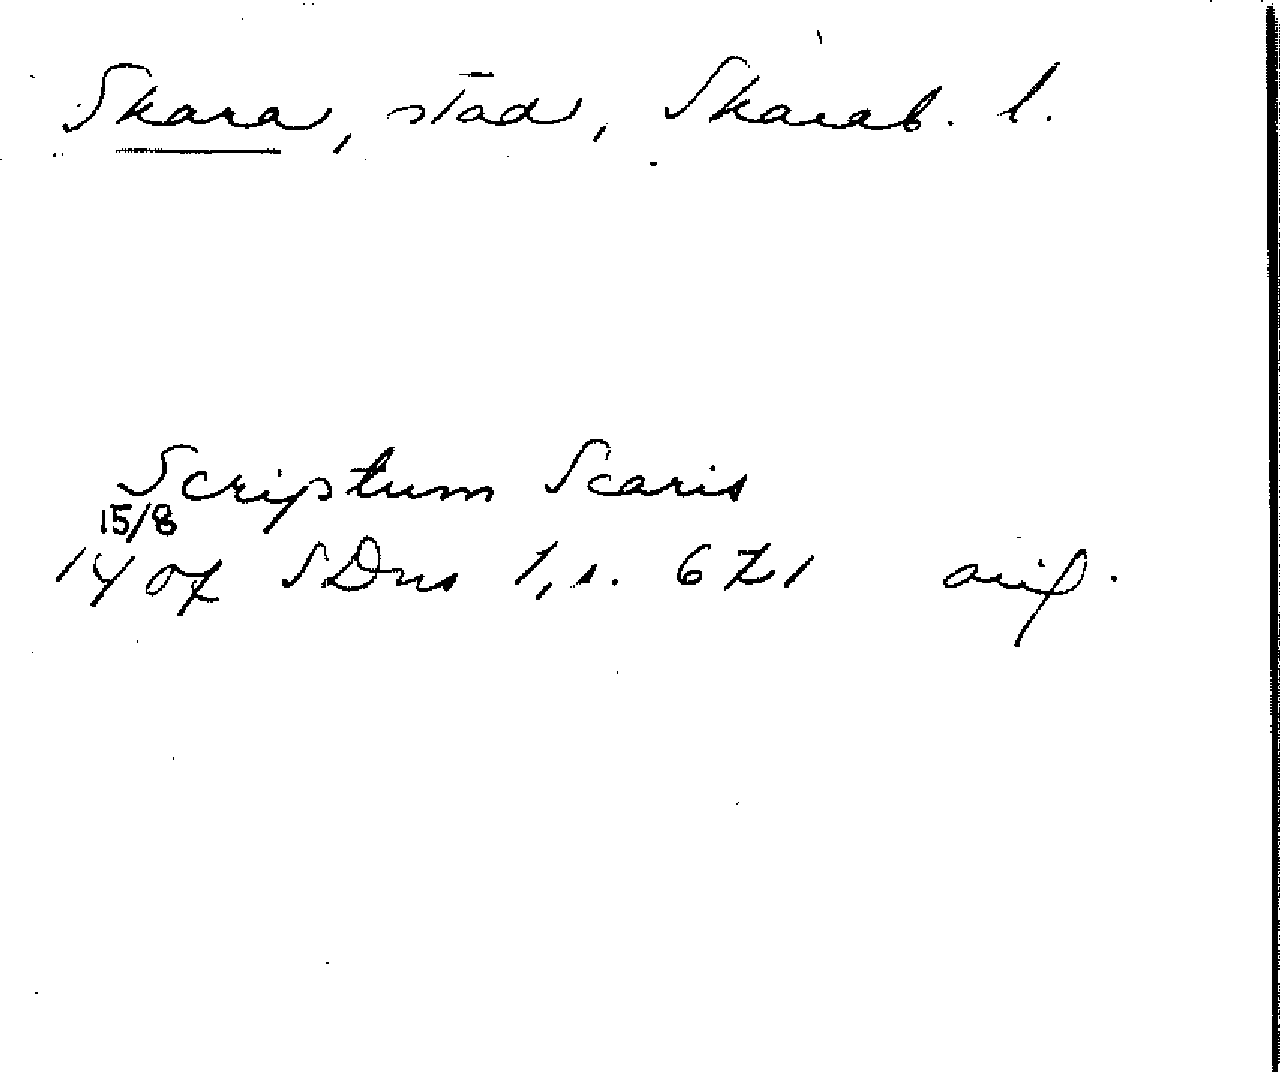 Skara, stad, Skarab. l.
Scriptum Scaris
15/8
1407 SDns 1, s. 671 avskr.